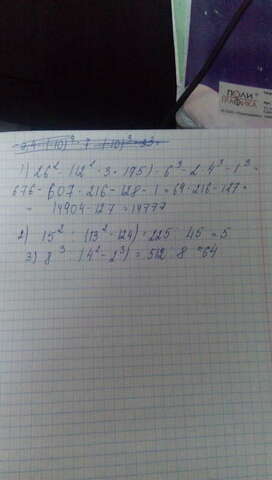 ПОЛИ
ГРАФИКА
1) 26² - (12² · 3 + 175) · 6³ - 2 · 4³ - 1³ =
676 - 607 · 216 - 128 - 1 = 69 · 216 - 127 =
= 14904 - 127 = 14777
2) 15² : (13² - 124) = 225 : 45 = 5
3) 8³ : (4² - 2³) = 512 : 8 = 64